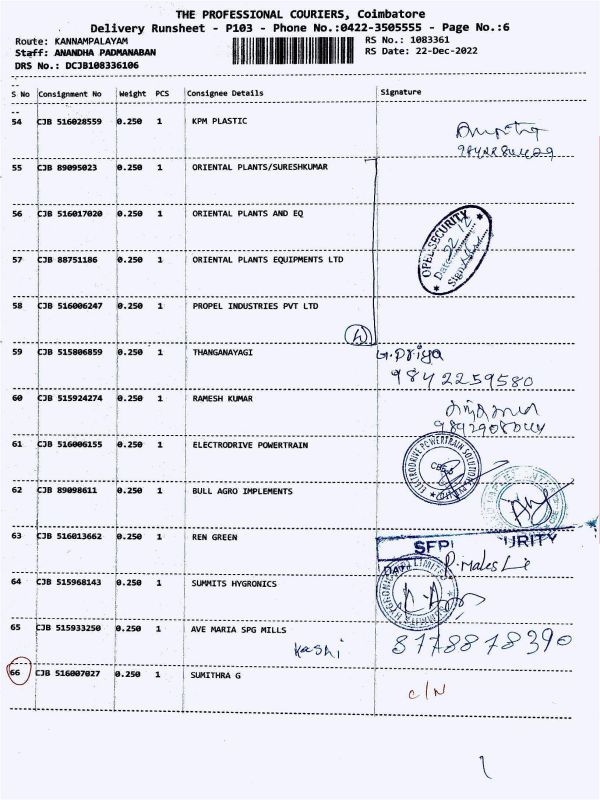 THE PROFESSIONAL COURIERS, Coimbatore
Delivery Runsheet - P103 - Phone No.:0422-3505555 - Page No.:6
Route: KANNAMPALAYAM RS No.: 1083361
Staff: ANANDHA PADMANABAN RS Date: 22-Dec-2022
DRS No.: DCJB108336106
S No Consignment No Weight PCS Consignee Details Signature
54 CJB 516028559 0.250 1 KPM PLASTIC
55 CJB 89095023 0.250 1 ORIENTAL PLANTS/SURESHKUMAR
56 CJB 516017020 0.250 1 ORIENTAL PLANTS AND EQ
OPEL SECURITY
Date 22/12
57 CJB 88751186 0.250 1 ORIENTAL PLANTS EQUIPMENTS LTD
58 CJB 516006247 0.250 1 PROPEL INDUSTRIES PVT LTD
59 CJB 515806859 0.250 1 THANGANAYAGI G.Priya
9842259580
60 CJB 515924274 0.250 1 RAMESH KUMAR
61 CJB 516006155 0.250 1 ELECTRODRIVE POWERTRAIN
ELECTRODRIVE POWERTRAIN SOLUTIONS
62 CJB 89098611 0.250 1 BULL AGRO IMPLEMENTS
63 CJB 516013662 0.250 1 REN GREEN
64 CJB 515968143 0.250 1 SUMMITS HYGRONICS
65 CJB 515933250 0.250 1 AVE MARIA SPG MILLS
Kashi 8178878390
66 CJB 516007027 0.250 1 SUMITHRA G
C/N